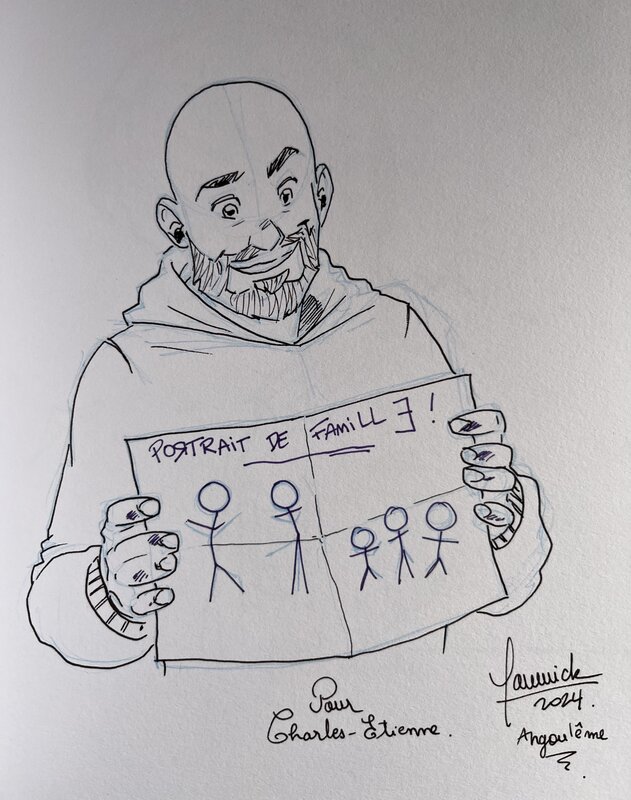 PORTRAIT DE FAMILLE !
Pour
Charles-Etienne.
Yannick
2024.
Angoulême